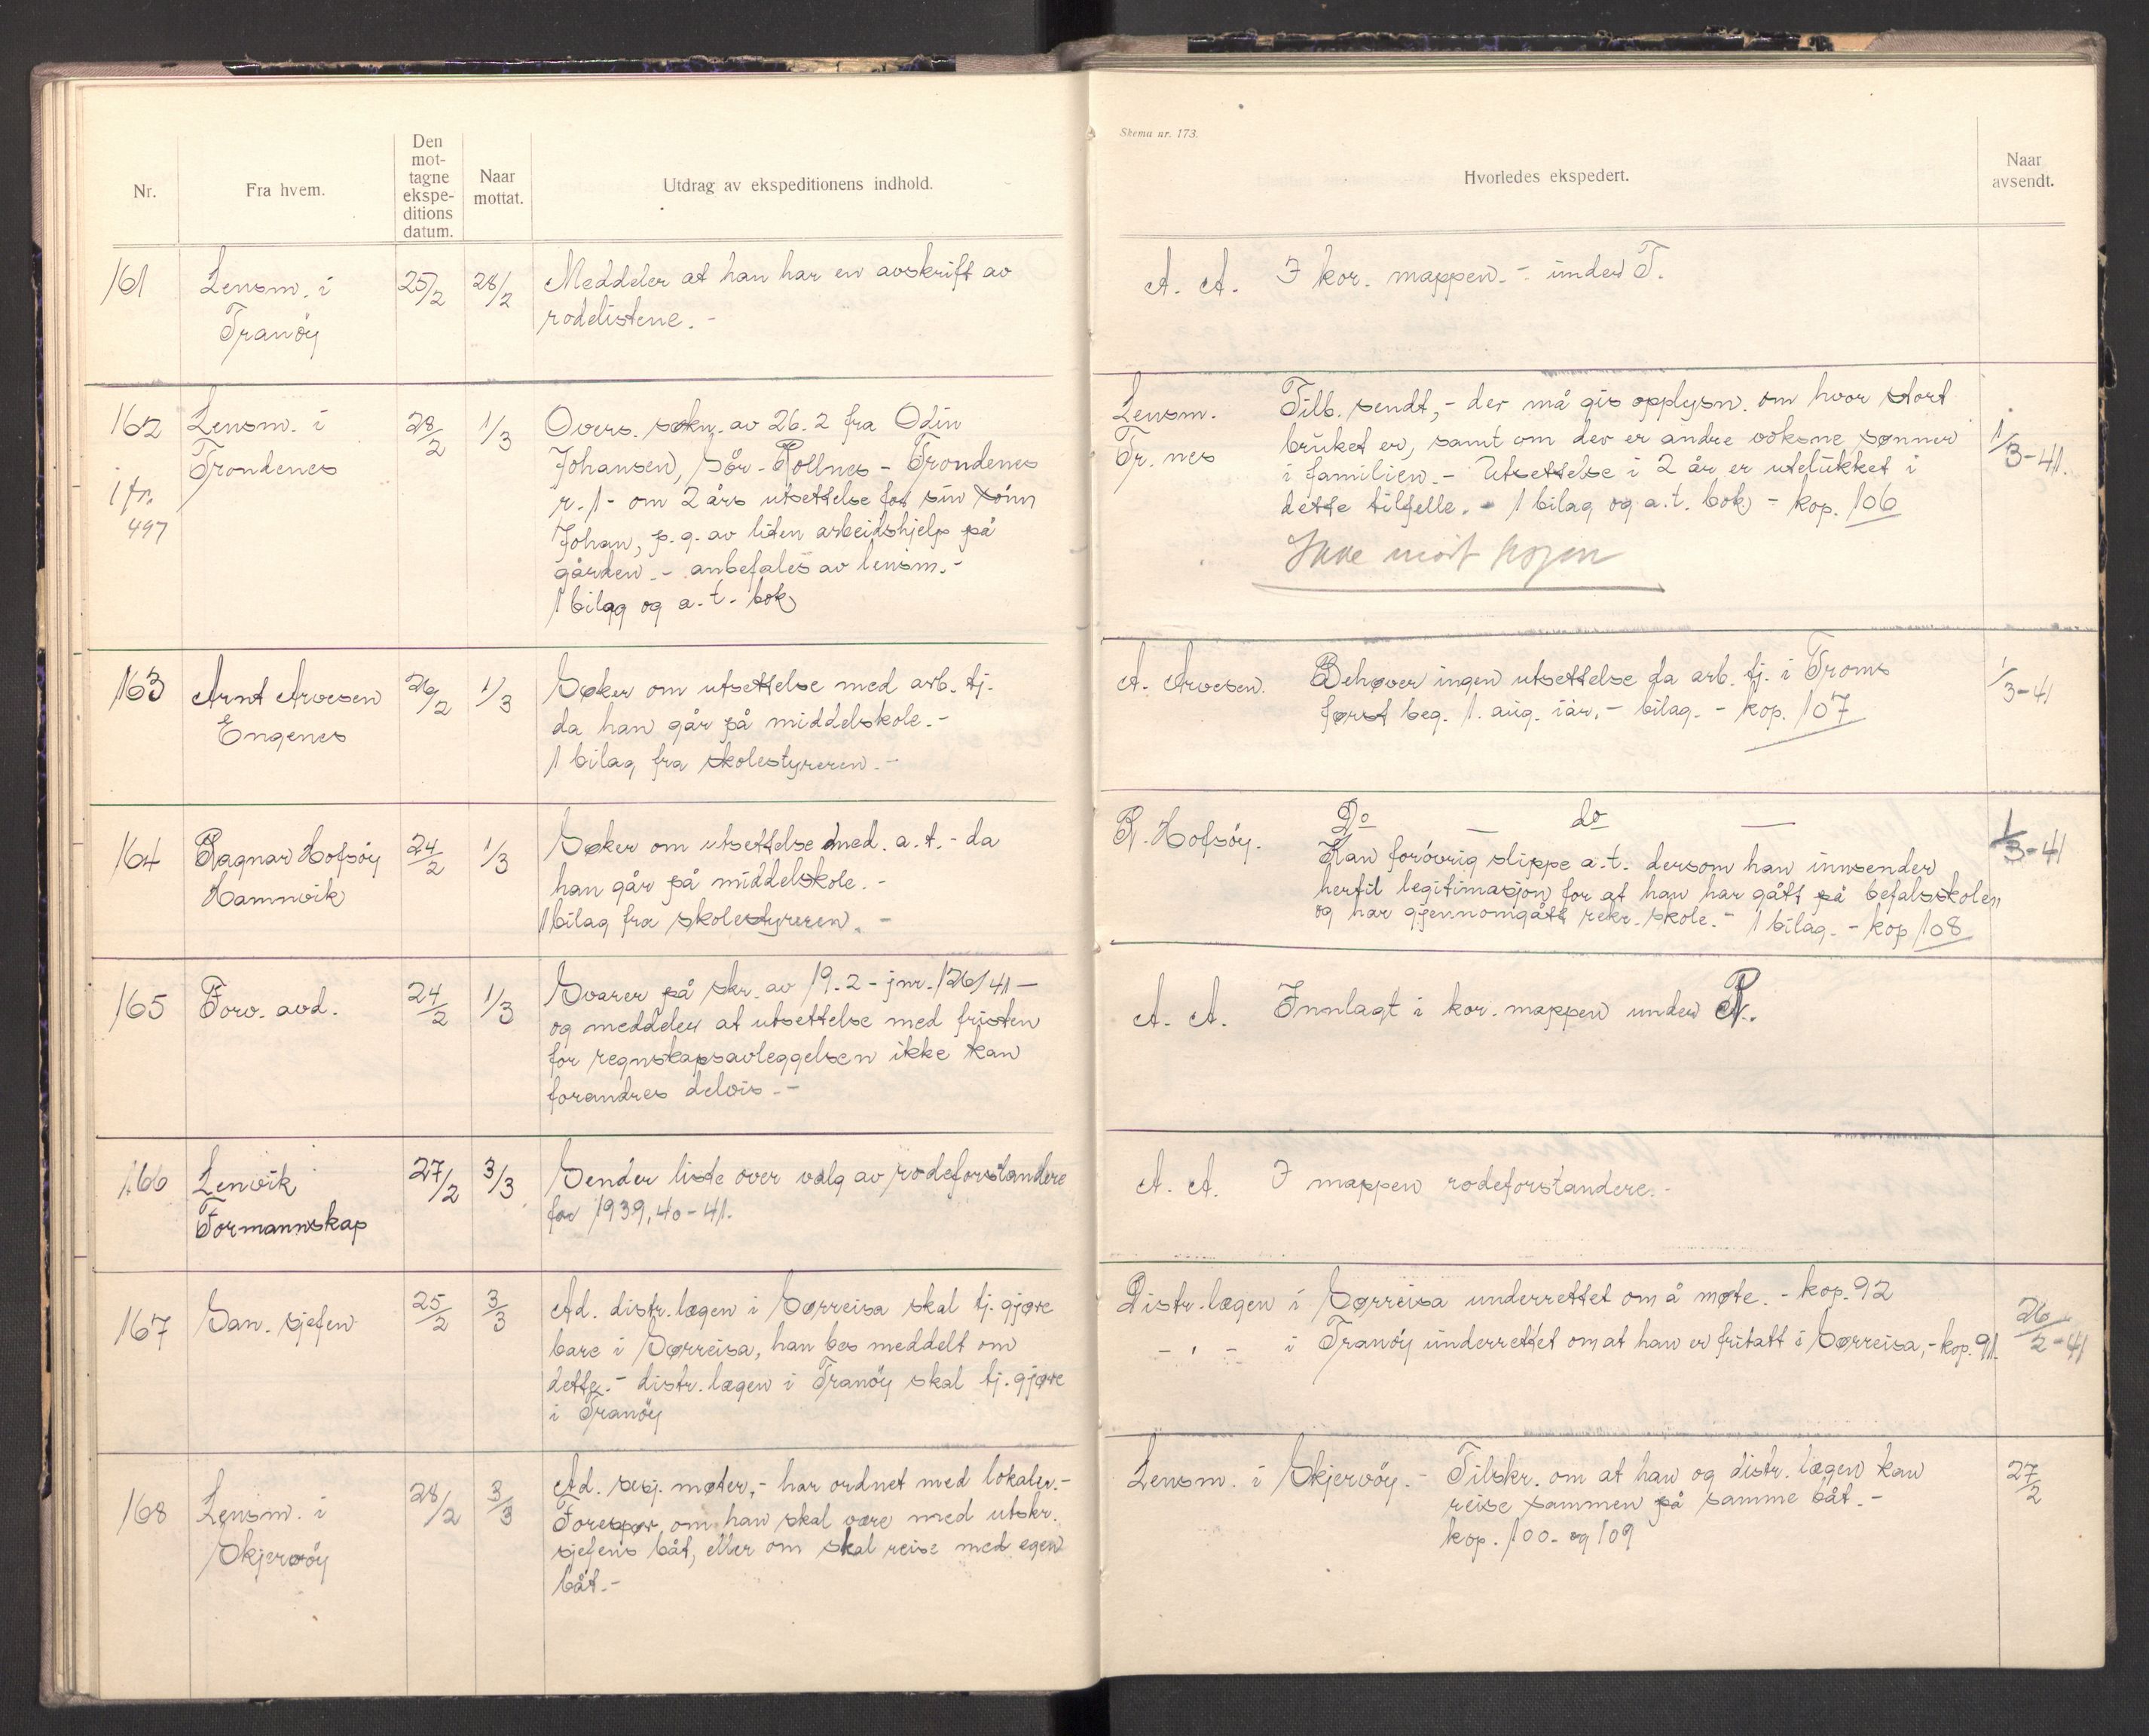 Skema nr. 173.
Nr.
Fra hvem.
Den
mot-
tagne
ekspe-
ditions
datum.
Naar
mottat.
Utdrag av ekspeditionens indhold.
Hvorledes ekspedert.
Naar
avsendt.
161
Lensm. i
Tranöy
25/2
28/2
Meddeler at han har en avskrift av
rodelistene. -
A. A. I kor. mappen. - under T.
162
Lensm. i
Trondenes
497
28/2
1/3
Overs. søkn. av 26. 2 fra Odin
Johansen, Sør-Rollnes - Trondenes
r. 1 - om 2 års utsettelse for sin sönn
Johan, p. g. av liden arbeidshjelp på
gården. - anbefales av lensm. -
1 bilag og a. t. bok
Lensm.
Tr. nes
Tilb. sendt, - der må gis opplysn. om hvor stort
bruket er, samt om der er andre voksne sønner
i familien. - Utsettelse i 2 år er utelukket i
dette tilfelle. - 1 bilag og a. t. bok - kop. 106
1/3-41.
163
Arnt Arvesen
Engenes
26/2
1/3
Søker om utsettelse med arb. tj.
da han går på middelskole. -
1 bilag fra skolestyreren. -
A. Arvesen.
Behøver ingen utsettelse da arb. tj. i Troms
først beg. 1. aug. iår. - bilag. - kop. 107
1/3-41
164
Ragnar Hofsöy
Hamnvik
24/2
1/3
Søker om utsettelse med. a. t. - da
han går på middelskole. -
1 bilag fra skolestyreren. -
R. Hofsöy.
Do — do —
Kan forövrig slippe a. t. dersom han innsender
hertil legitimasjon for at han har gått på befalsskolen
og har gjennomgått rekr. skole. - 1 bilag. - kop 108
1/3-41
165
Forv. avd.
24/2
1/3
Svarer på skr. av 19. 2 - jnr. 126/41 -
og meddeler at utsettelse med fristen
for regnskapsavleggelsen ikke kan
forandres delvis. -
A. A. Innlagt i kor. mappen under R.
166
Lenvik
Formannskap
27/2
3/3
Sender liste over valg av rodeforstandere
for 1939, 40 - 41.
A. A. I mappen rodeforstandere. -
167
San. sjefen
25/2
3/3
Ad. distr. lægen i Sørreisa skal tj. gjøre
bare i Sørreisa, han bes meddelt om
dette. - distr. lægen i Tranöy skal tj. gjøre
i Tranöy
Distr. lægen i Sørreisa underrettet om å møte. - kop. 92
- " - i Tranöy underrettet om at han er fritatt i Sørreisa, - kop. 91.
26/2-41
168
Lensm. i
Skjervöy
28/2
3/3
Ad. sesj. møter, - har ordnet med lokaler. -
Forespør om han skal være med utskr.
sjefens båt, eller om skal reise med egen
båt. -
Lensm. i Skjervöy. - Tilskr. om at han og distr. lægen kan
reise sammen på samme båt. -
kop. 100 - og 109
27/2